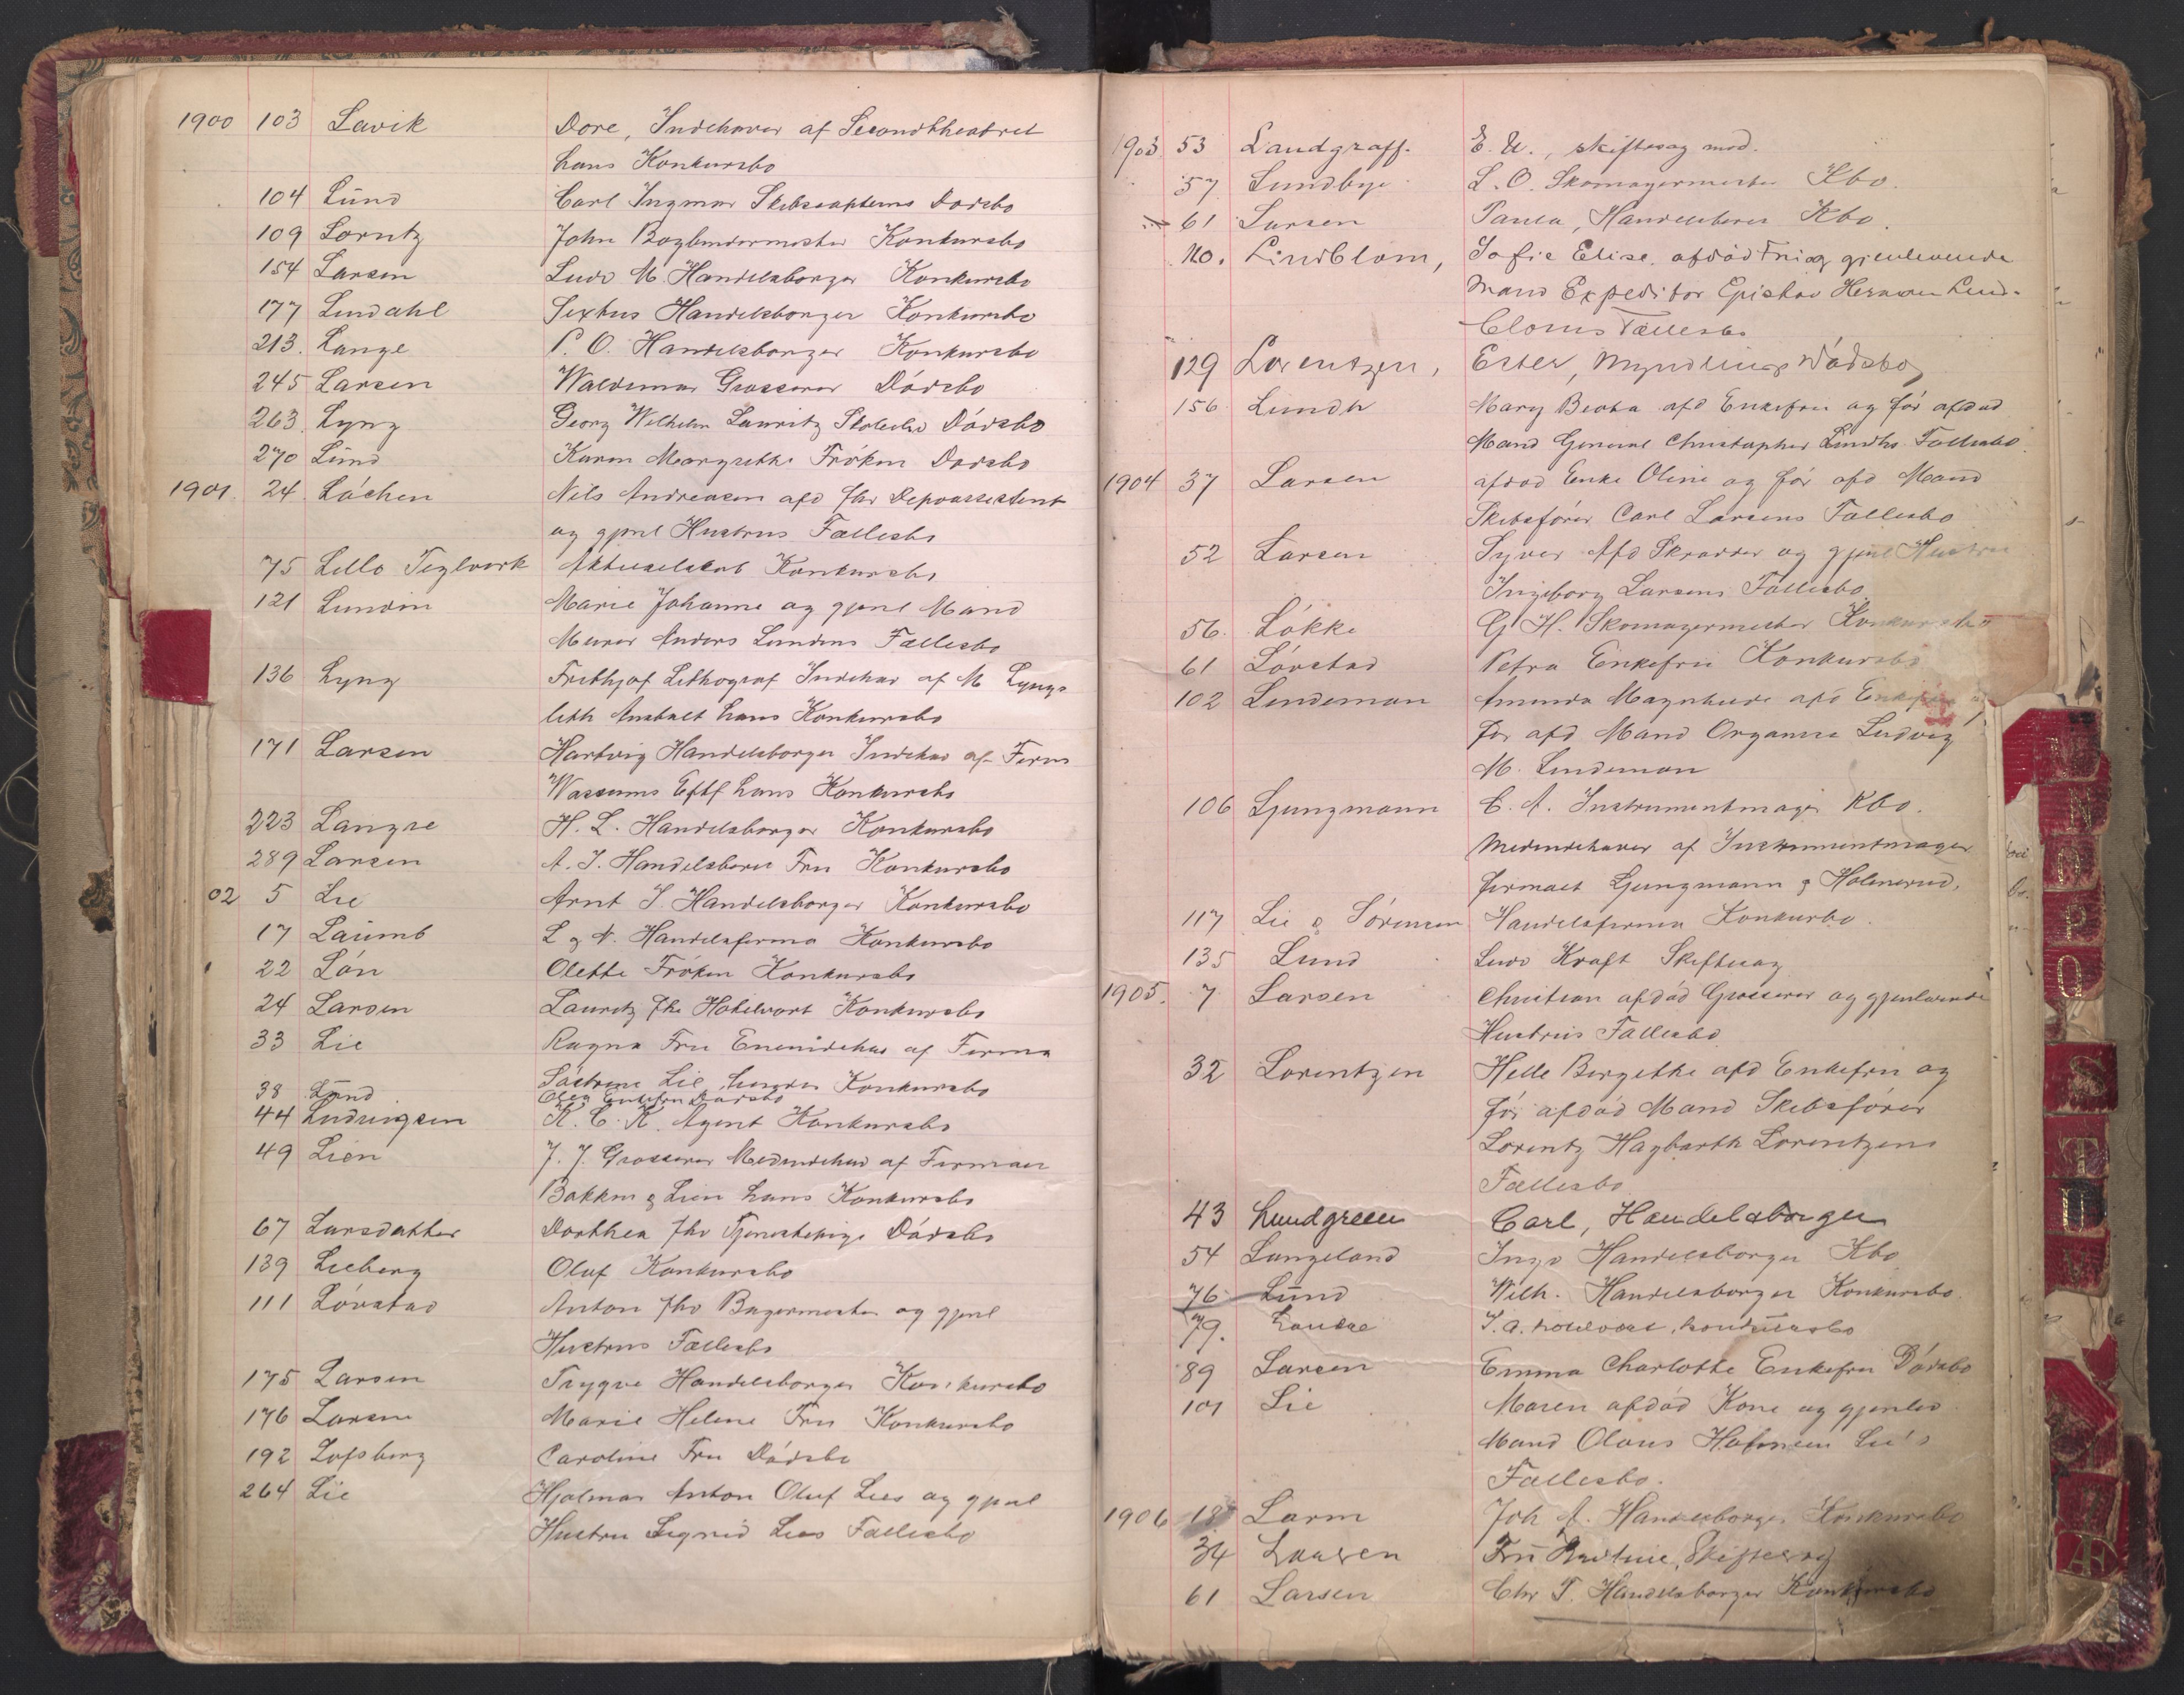 1900 103 Lavik Dore, Indehaver af Secondtheatret
hans Konkursbo
104 Lund Carl Ingmar Skibscapteins Dødsbo
109 Lorntz John Bogbindermester Konkursbo
154 Larsen Ludv M. Handelsborger Konkursbo
177 Lindahl Sextus Handelsborger Konkursbo
213. Lange P. O. Handelsborger Konkursbo
245 Larsen Waldemar Grosserer Dódsbo
263. Lyng Georg Wilhelm Lauritz Dódsbo
270 Lund Karen Margrethe Frøken Dødsbo
1901. 24. Lóchen Nils Andreasen afd fhv Depotassistent
og gjenl Hustrus Fællesbo
75 Lillo Teglverk Aktieselskab Konkursbo
121 Lundin Marie Johanne og gjenl Mand
Murer Anders Lundins Fællesbo
136 Lyng Frithjof Lithograf Indehav af M Lyngs
lith Anstalt hans Konkursbo
171 Larsen Hartvig Handelsborger Indehav af Firma
Wassums Eftf hans Konkursbo
223 Langre H. L. Handelsborger Konkursbo
289 Larsen A. J. Handelsborer Fru Konkursbo
02 5 Lie Arnt J. Handelsborger Konkursbo
17 Laumb L & N. Handelsfirma Konkursbo
22 Lón Olette Frøken Konkursbo
24 Larsen Lauritz fhv Hotelvært Konkursbo
33 Lie Ragna Fru Eneindehav af Firma
Søstrene Lie hendes Konkursbo
38 Lund Olea Enkefru Dødsbo
44 Ludvigsen K. C. K. Agent Konkursbo
49 Lien J. J. Grosserer Medindehav af Firmaet
Bakken & Lien hans Konkursbo
67 Larsdatter Dorthea fhv Tjenestepige Dódsbo
139 Lieberg Oluf Konkursbo
111 Lóvstad Anton fhv Bagermester og gjenl
Hustrus Fællesbo
175 Larsen Trygve Handelsborger Konkursbo
176 Larsen Marie Helene Fru Konkursbo
192 Lofsberg Caroline Fru Dódsbo
264 Lie Hjalmar Anton Oluf Lies og gjenl
Hustru Sigrid Lies Fællesbo
1903 53 Landgraff. E. U., skiftesag mod.
57 Lundbye L. O. Skomagermester Kbo.
61 Larsen Paula, Handelsborer Kbo.
110. Lindblom, Sofie Elise, afdød Fru og gjenlevende
Mand Expeditør Herman Lind-
bloms Fællesbo
129 Lorentzen, Ester, Myndlings Dódsbo
156 Lundh Mary Beata afd Enkefru og før afdød
Mand General Christopher Lundhs Fællesbo.
1904 37 Larsen afdød Enke Oline og før afd Mand
Skibsfører Carl Larsens Fællesbo
52 Larsen Syver Afd Skrædder og gjenl Hustru
Ingeborg Larsens Fællesbo
56. Lókke G. H. Skomagermester Konkursbo
61 Lóvstad Petra Enkefru Konkursbo
102 Lindeman Amunda Magnhilde afd Enkefru og
før afd Mand Organist Ludvig
M. Lindeman
106 Ljungmann C. A. Instrumentmager Kbo.
Medindehaver af Instrumentmager
firmaet Ljungmann & Holmerud.
117 Lie & Sórensen Handelsfirma Konkursbo.
135 Lund Ludv Kraft Skiftesag
1905. 7 Larsen Christian afdød Grosserer og gjenlevende
Hustrus Fællesbo
32 Lorentzen Helle Bergethe afd Enkefru og
før afdød Mand Skibsfører
Lorentz Hagbarth Lorentzens
Fællesbo
43 Lundgreen Carl, Handelsborger
54 Langeland Inga Handelsborger Kbo
76 Lund Wilh. Handelsborger Konkursbo.
79. J. A. Hotelvært, Konkursbo
89 Larsen Emma Charlotte Enkefru Dódsbo
101 Lie Maren afdød Kone og gjenlev
Mand Olaus Lie's
Fællesbo.
1906 18 Larm Joh A. Handelsborger Konkursbo
34 Larsen Fru Skiftesag
61 Larsen Chr T. Handelsborger Konkursbo